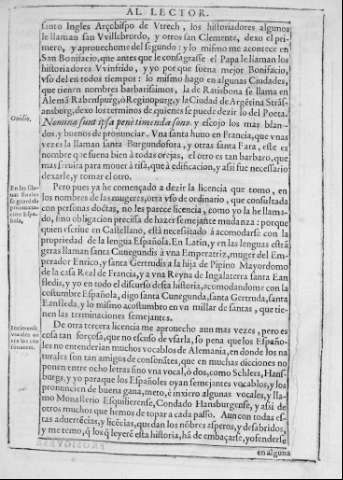 AL LECTOR.
santo Ingles Arçobispo de Vtrech, los historiadores algunos
le llaman san Vuillebrordo, y otros san Clemente, dexo el pri-
mero, y aprouechome del segundo: y lo mismo me acontece en
San Bonifacio, que antes que le consagrasse el Papa le llaman los
historiadores Vuinfrido, y yo por que suena mejor Bonifacio,
vso del en todos tiempos: lo mismo hago en algunas Ciudades,
que tienen nombres barbarissimos, la de Ratisbona se llama en
y la Ciudad de Argētina Stras-
sansborg, dexo los terminos de quienes se puede dezir lo del Poeta.
Ouidio.
Nomina sunt ipsa penè timenda sono. y escojo los mas blan-
dos, y buenos de pronunciar. Vna santa huuo en Francia, que vnas
vezes la llaman santa Burgundofora, y otras santa Fara, este es
nombre que suena bien à todas orejas, el otro es tan barbaro, que
mas siruira para mouer à risa, que à edificacion, y assi fue necessario
dexarle, y tomar el otro.
Pero pues ya he començado a dezir la licencia que tomo, en
los nombres de las mugeres, otra vso de ordinario, que consultada
con personas doctas, no les parece licencia, como yo la he llama-
do, sino obligacion precisa de hazer semejante mudança: porque
quien escriue en Castellano, està necessitado à acomodarse con la
propriedad de la lengua Española. En Latin, y en las lenguas estrā
geras llaman santa Cunegundis à vna Emperatriz, muger del Em-
perador Enrico, y santa Gertrudis a la hija de Pipino Mayordomo
de la casa Real de Francia, y a vna Reyna de Ingalaterra santa Ean
fledis, y yo en todo el discurso desta historia, acomodandome con la
costumbre Española, digo santa Cunegunda, santa Gertruda, santa
Eanfleda, y lo mismo acostumbro en vn millar de santas, que tie-
nen las terminaciones semejantes.
De otra tercera licencia me aprouecho aun mas vezes, pero es
cosa tan forçosa, que no escuso de vsarla, so pena que los Españo-
les no entenderian muchos vocablos de Alemania, en donde los na
turales son tan amigos de consonātes, que en muchas dicciones no
ponen entre ocho letras sino vna vocal, ò dos, como Schlerz, Hans-
burgz, y yo para que los Españoles oyan semejantes vocablos, y los
pronuncien de buena gana, meto, è inxiero algunas vocales, y lla-
mo Monasterio Esquilierense, Condado Hansburgense, y assi de
otros muchos que hemos de topar a cada passo. Aun con todas es-
tas aduertēcias, y licēcias, que dan los nōbres asperos, y desabridos,
y me temo, q̄ los q̄ leyerē esta historia, hā de embaçarse, y ofenderse
en alguna